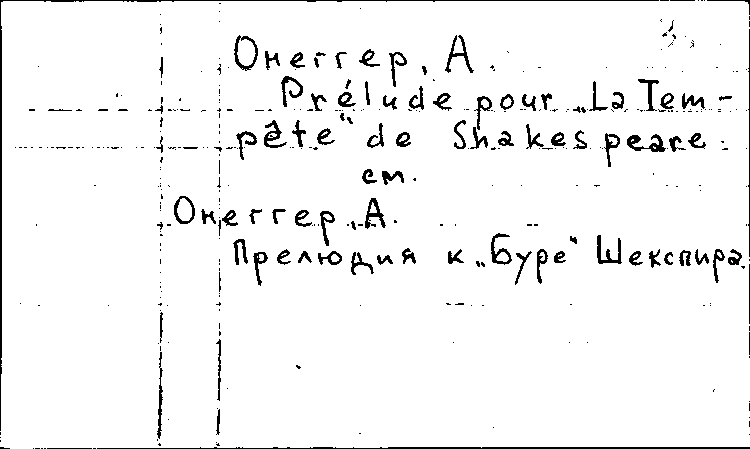 Онеггер, А.
Prélude pour „La Tem-
pête" de Shakespeare.
см.
Онеггер, А.
Прелюдия к „Буре" Шекспира.